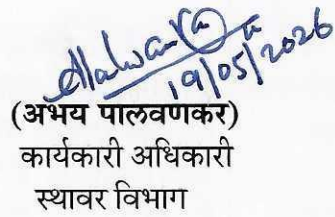 19/05/2026
(अभय पालवणकर)
कार्यकारी अधिकारी
स्थावर विभाग